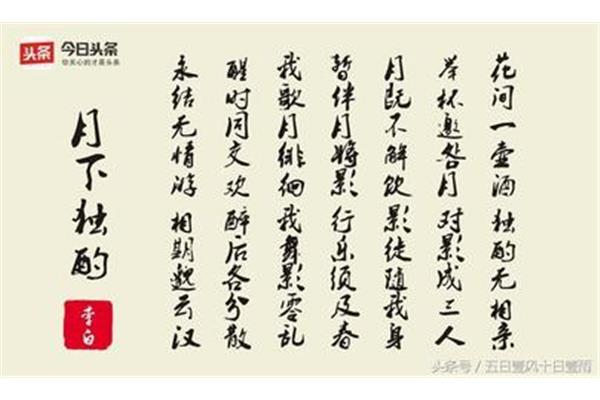 头条 今日头条
你关心的才是头条
花间一壶酒 独酌无相亲
举杯邀明月 对影成三人
月既不解饮 影徒随我身
暂伴月将影 行乐须及春
我歌月徘徊 我舞影零乱
醒时同交欢 醉后各分散
永结无情游 相期邈云汉
月下独酌
李白
头条号 / 五日壹风十日壹雨